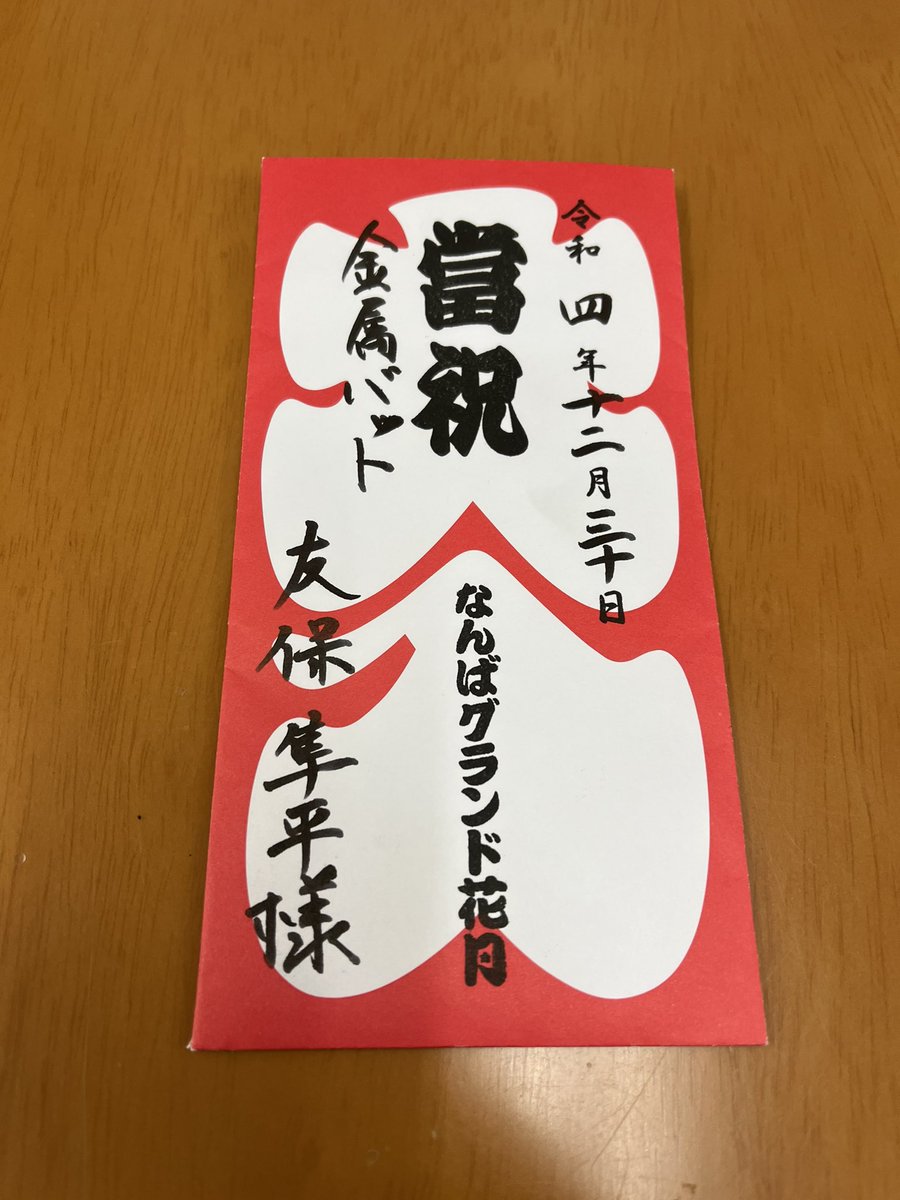 令和四年十二月三十日
當祝
なんばグランド花月
金属バット
友保隼平様